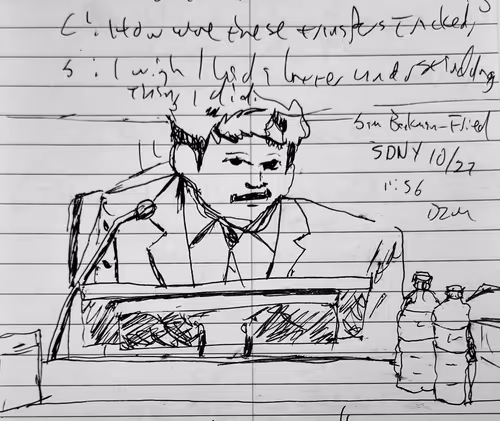 C: How were these transfers tracked,
S: I wish I had a better understanding
than I did
Sam Bankman-Fried
SDNY 10/27